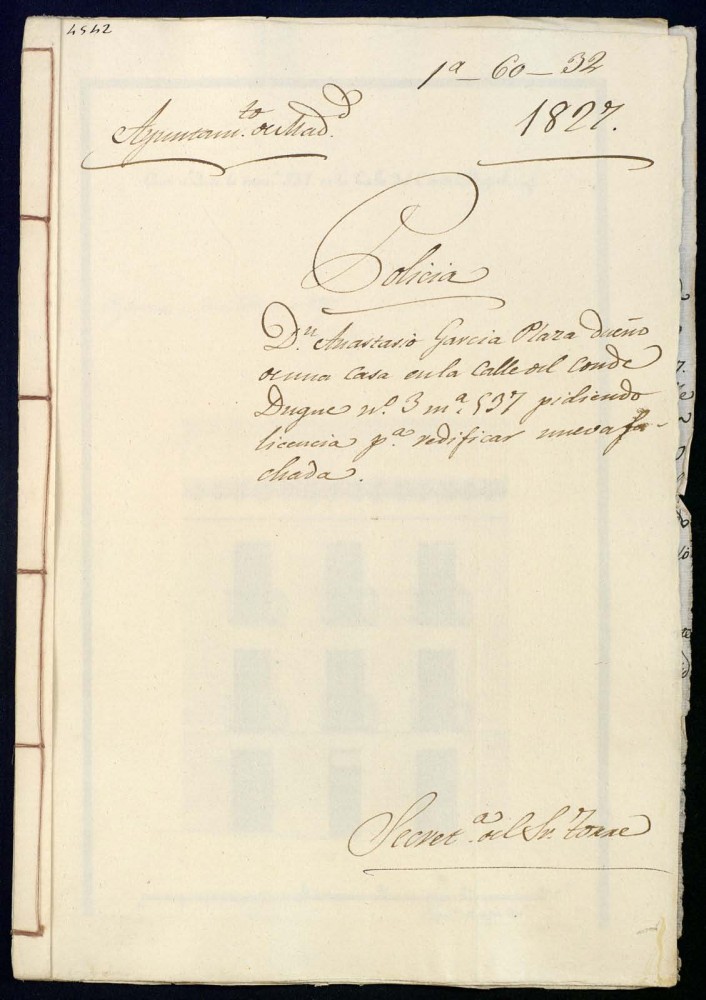 4542
1ª - 60 - 32
Ayuntam.to de Mad.d
1827.
Policia
D.n Anastasio Garcia Plaza dueño
de una casa en la Calle del Conde
Duque n.o 3 m.a 537 pidiendo
licencia p.a redificar nueva fa-
chada.
Secret.a del Sr. Torre